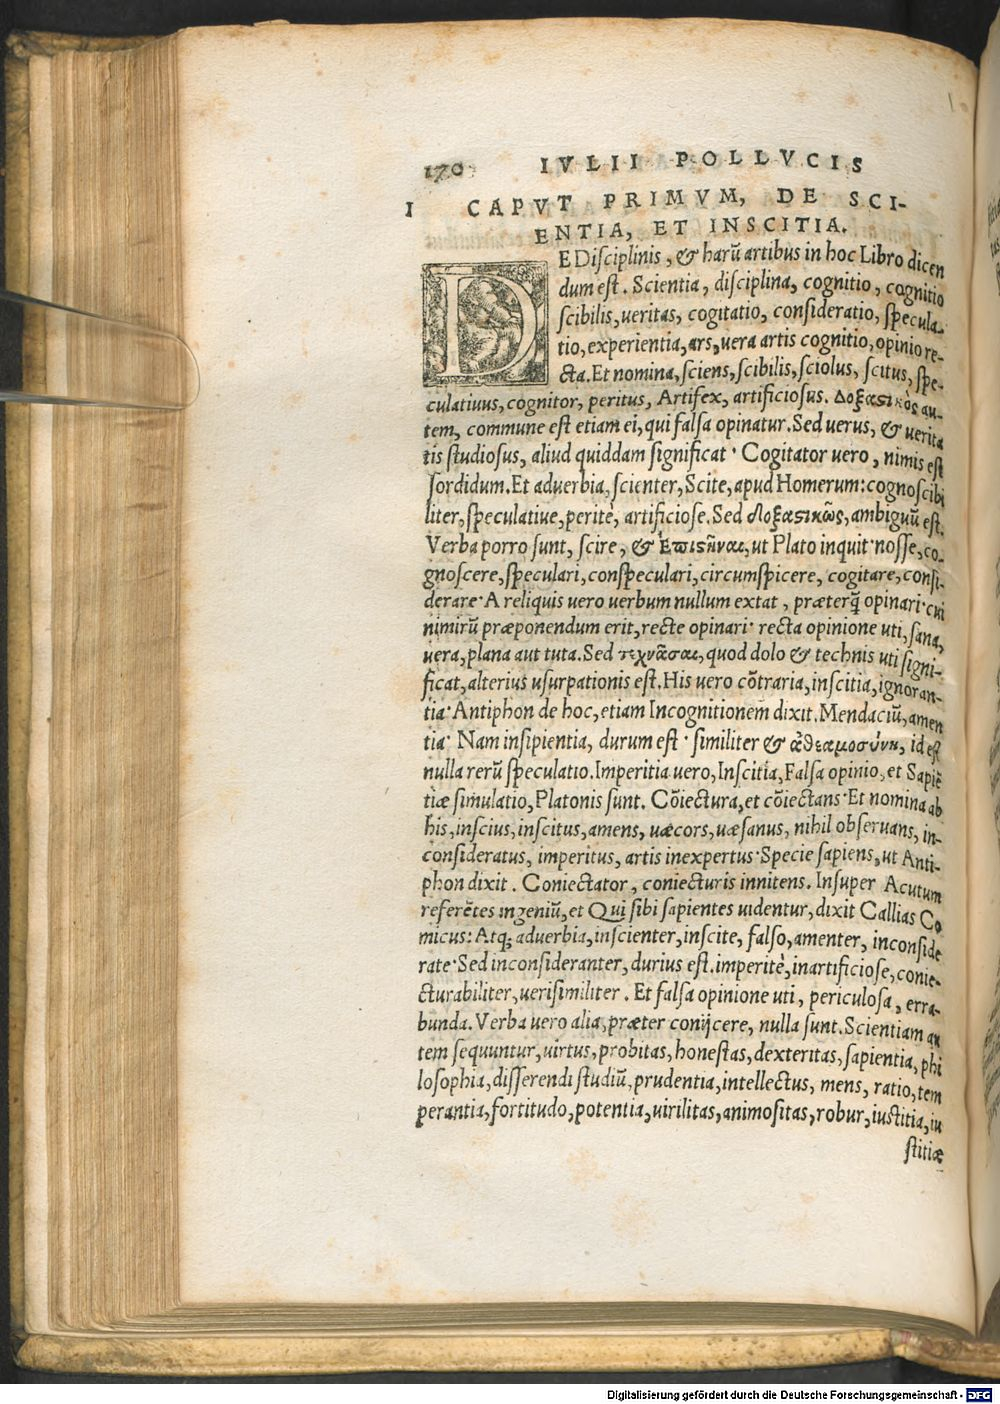 170 IVLII POLLVCIS
I CAPVT PRIMVM, DE SCI-
ENTIA, ET INSCITIA.
DE Disciplinis, & harū artibus in hoc Libro dicen
dum est. Scientia, disciplina, cognitio, cognitio
scibilis, ueritas, cogitatio, consideratio, specula-
tio, experientia, ars, uera artis cognitio, opinio re-
cta. Et nomina, sciens, scibilis, sciolus, scitus, spe-
culatiuus, cognitor, peritus, Artifex, artificiosus. Δοξαςικὸς au-
tem, commune est etiam ei, qui falsa opinatur. Sed uerus, & uerita
tis studiosus, aliud quiddam significat· Cogitator uero, nimis est
sordidum. Et aduerbia, scienter, Scite, apud Homerum: cognoscibi
liter, speculatiue, peritè, artificiose. Sed δοξαςικῶς, ambiguū est.
Verba porro sunt, scire, & ἐπιςῆναι, ut Plato inquit· nosse, co-
gnoscere, speculari, conspeculari, circumspicere, cogitare, consi-
derare· A reliquis uero uerbum nullum extat, præterq̄ opinari· cui
nimirū præponendum erit, recte opinari· recta opinione uti, sana,
uera, plana aut tuta. Sed τεχνᾶσαι, quod dolo & technis uti signi-
ficat, alterius usurpationis est. His uero cōtraria, inscitia, ignoran-
tia· Antiphon de hoc, etiam Incognitionem dixit. Mendaciū, amen
tia· Nam insipientia, durum est· similiter & ἀθεαμοσύνη, id est
nulla rerū speculatio. Imperitia uero, Inscitia, Falsa opinio, et Sapiē
tiæ simulatio, Platonis sunt. Cōiectura, et cōiectans· Et nomina ab
his, inscius, inscitus, amens, uæcors, uæsanus, nihil obseruans, in-
consideratus, imperitus, artis inexpertus· Specie sapiens, ut Anti-
phon dixit. Coniectator, coniecturis innitens. Insuper Acutum
referētes ingeniū, et Qui sibi sapientes uidentur, dixit Callias Co
micus: Atq; aduerbia, inscienter, inscite, falso, amenter, inconside
rate· Sed inconsideranter, durius est. imperitè, inartificiose, conie-
cturabiliter, uerisimiliter. Et falsa opinione uti, periculosa, erra-
bunda. Verba uero alia, præter conijcere, nulla sunt. Scientiam au
tem sequuntur, uirtus, probitas, honestas, dexteritas, sapientia, phi
losophia, disserendi studiū, prudentia, intellectus, mens, ratio, tem
perantia, fortitudo, potentia, uirilitas, animositas, robur, iustitia, iu
stitiæ
Digitalisierung gefördert durch die Deutsche Forschungsgemeinschaft - DFG